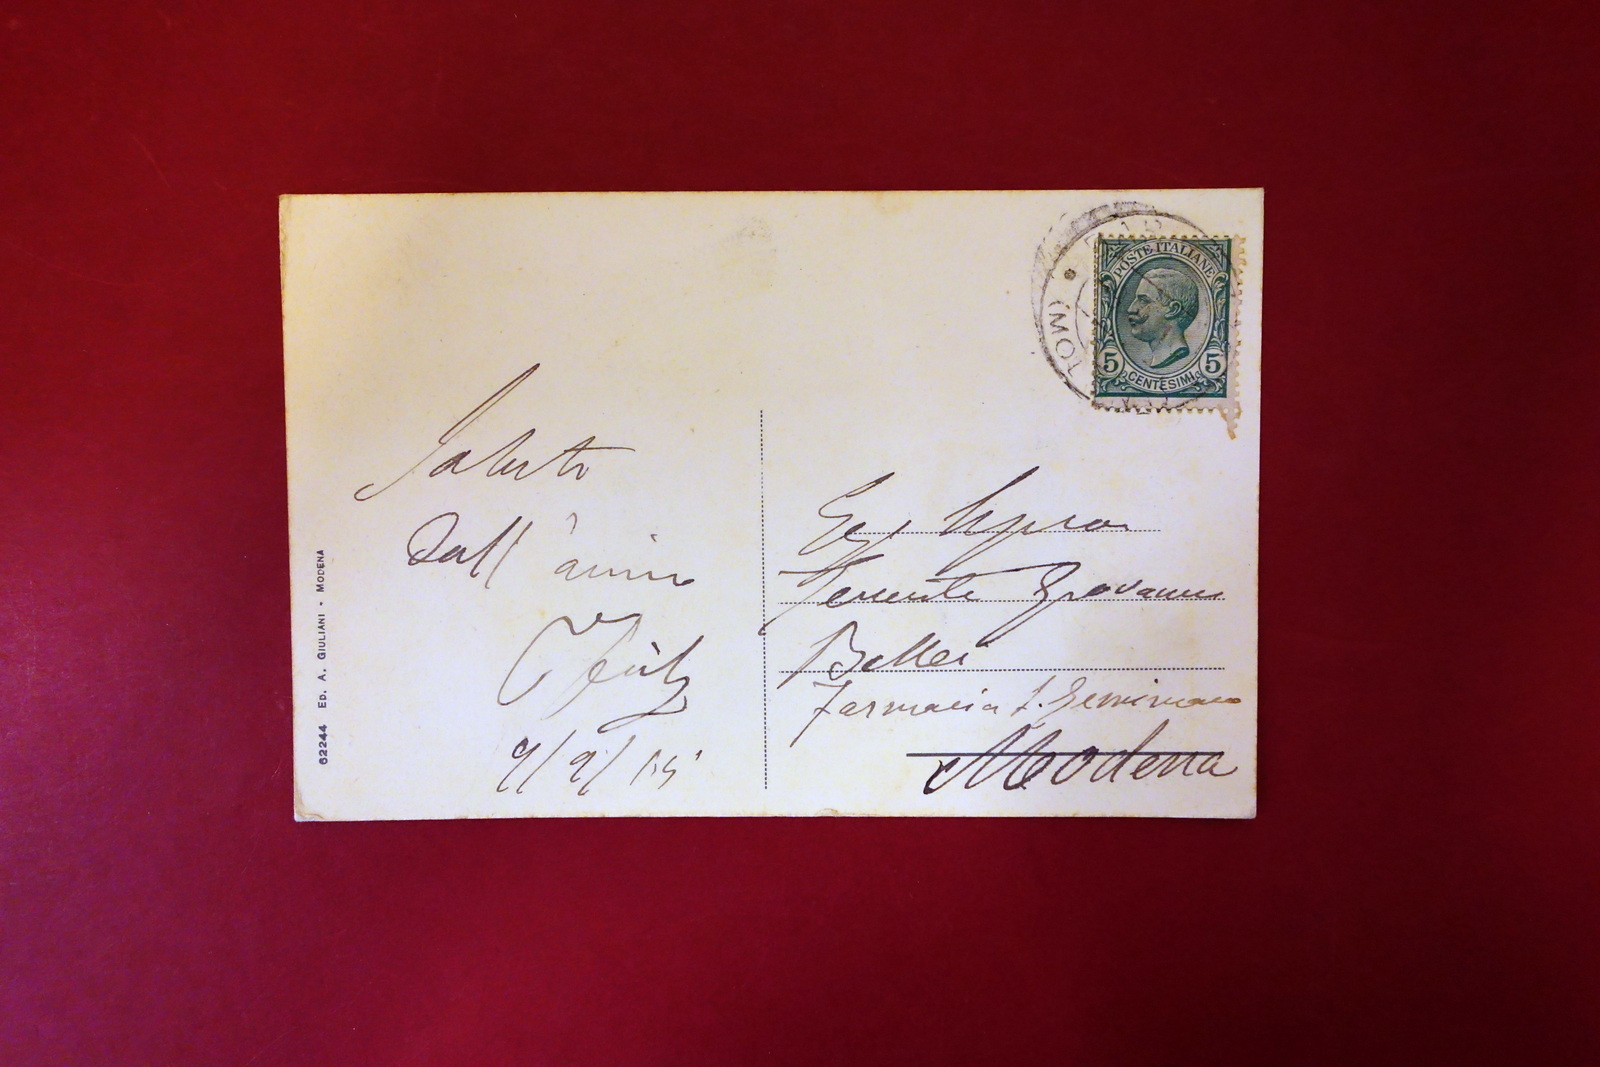 62244 ED. A. GIULIANI - MODENA
Saluto
Dall'
9/9/15
POSTE ITALIANE
5 CENTESIMI 5
(MO
Tenente Giovanni
Bellei
Farmacia S. Geminiano
Modena